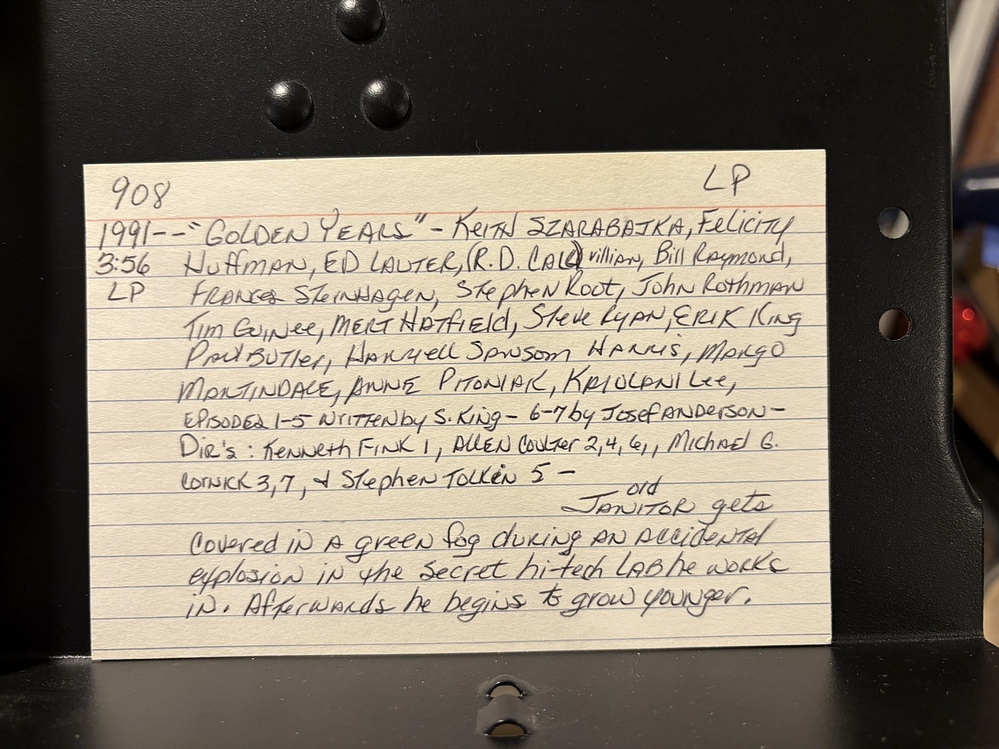 908 LP
1991-- "GOLDEN YEARS" - KEITH SZARABAJKA, FELICITY
3:56 HUFFMAN, ED LAUTER, (R.D. CALL) rillian, Bill Raymond,
LP FRANCES STEINHAGEN, STEPHEN ROOT, JOHN ROTHMAN
TIM GUINEE, MERT HATFIELD, STEVE RYAN, ERIK KING
PAUL BUTLER, HARRELL SANSOM HARRIS, MARGO
MARTINDALE, ANNE PITONIAK, KRIOLANI Lee,
EPISODES 1-5 WRITTEN by S. KING - 6-7 by JOSEF ANDERSON -
DIR'S: KENNETH FINK 1, ALLEN COULTER 2,4,6,, MICHAEL G.
CORNICK 3,7, & STEPHEN TOLKIN 5 -
old
JANITOR gets
COVERED IN A green fog during AN ACCIDENTAL
explosion in the secret hi-tech LAB he works
in. Afterwards he begins to grow younger.